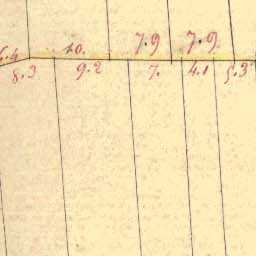 6.4 10. 7.9 7.9
8.3 9.2 7. 4.1 5.3